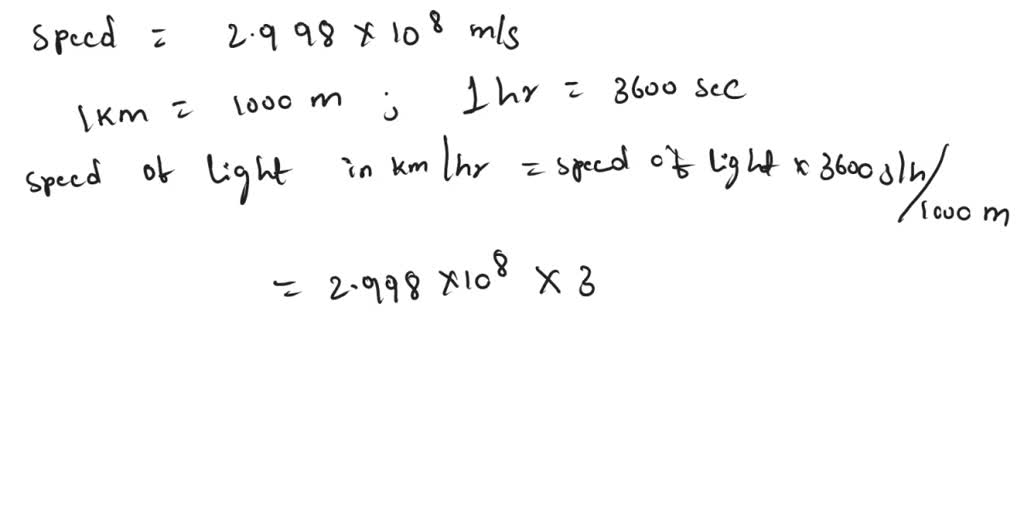 Speed = 2.998 × 10⁸ m/s
1Km = 1000 m ; 1 hr = 3600 sec
speed of light in km/hr = speed of light × 3600 s/h/1000 m
= 2.998 ×10⁸ × 3